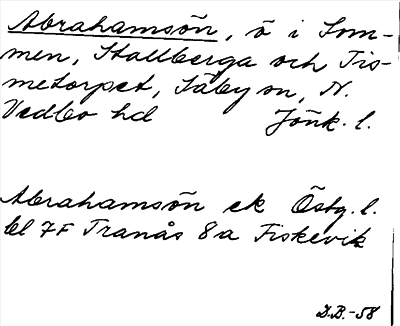 Abrahamsön, ö i Som-
men, Stallberga och Fis-
metorpet, Säby sn, N.
Vedbo hd Jönk. l.
Abrahamsön ek Östg. l.
bl 7F Tranås 8a Fiskevik
D.B.-58